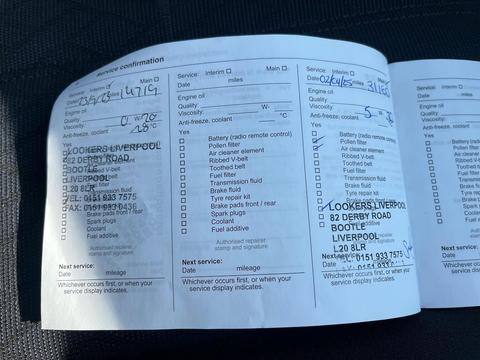 Service confirmation
Service: Interim Main
Date 23/9/23 miles 14719
Engine oil
Quality:
Viscosity: 0 W- 20
Anti-freeze, coolant -28 °C
Yes
LOOKERS LIVERPOOL
82 DERBY ROAD
BOOTLE
LIVERPOOL
L20 8LR
TEL: 0151 933 7575
FAX: 0151 933 0436
Transmission fluid
Brake pads front / rear
Spark plugs
Coolant
Fuel additive
Authorised repairer
stamp and signature
Next service:
Date mileage
Whichever occurs first, or when your
service display indicates.
Service: Interim Main
Date miles
Engine oil
Quality:
Viscosity: W-
Anti-freeze, coolant °C
Yes
Battery (radio remote control)
Pollen filter
Air cleaner element
Ribbed V-belt
Toothed belt
Fuel filter
Transmission fluid
Brake fluid
Tyre repair kit
Brake pads front / rear
Spark plugs
Coolant
Fuel additive
Authorised repairer
stamp and signature
Next service:
Date mileage
Whichever occurs first, or when your
service display indicates.
Service: Interim Main
Date miles
Engine oil
Quality:
Viscosity:
Anti-freeze, coolant
Yes
Battery (radio remote control)
Pollen filter
Air cleaner element
Ribbed V-belt
Toothed belt
Fuel filter
Transmission fluid
Brake fluid
Tyre repair kit
LOOKERS LIVERPOOL
82 DERBY ROAD
BOOTLE
LIVERPOOL
L20 8LR
TEL: 0151 933 7575
Next service:
Date
Whichever occurs first, or when your
service display indicates.
Service:
Date
Engine oil
Quality:
Viscosity:
Anti-freeze, coolant
Yes
Next service:
Date
Whichever